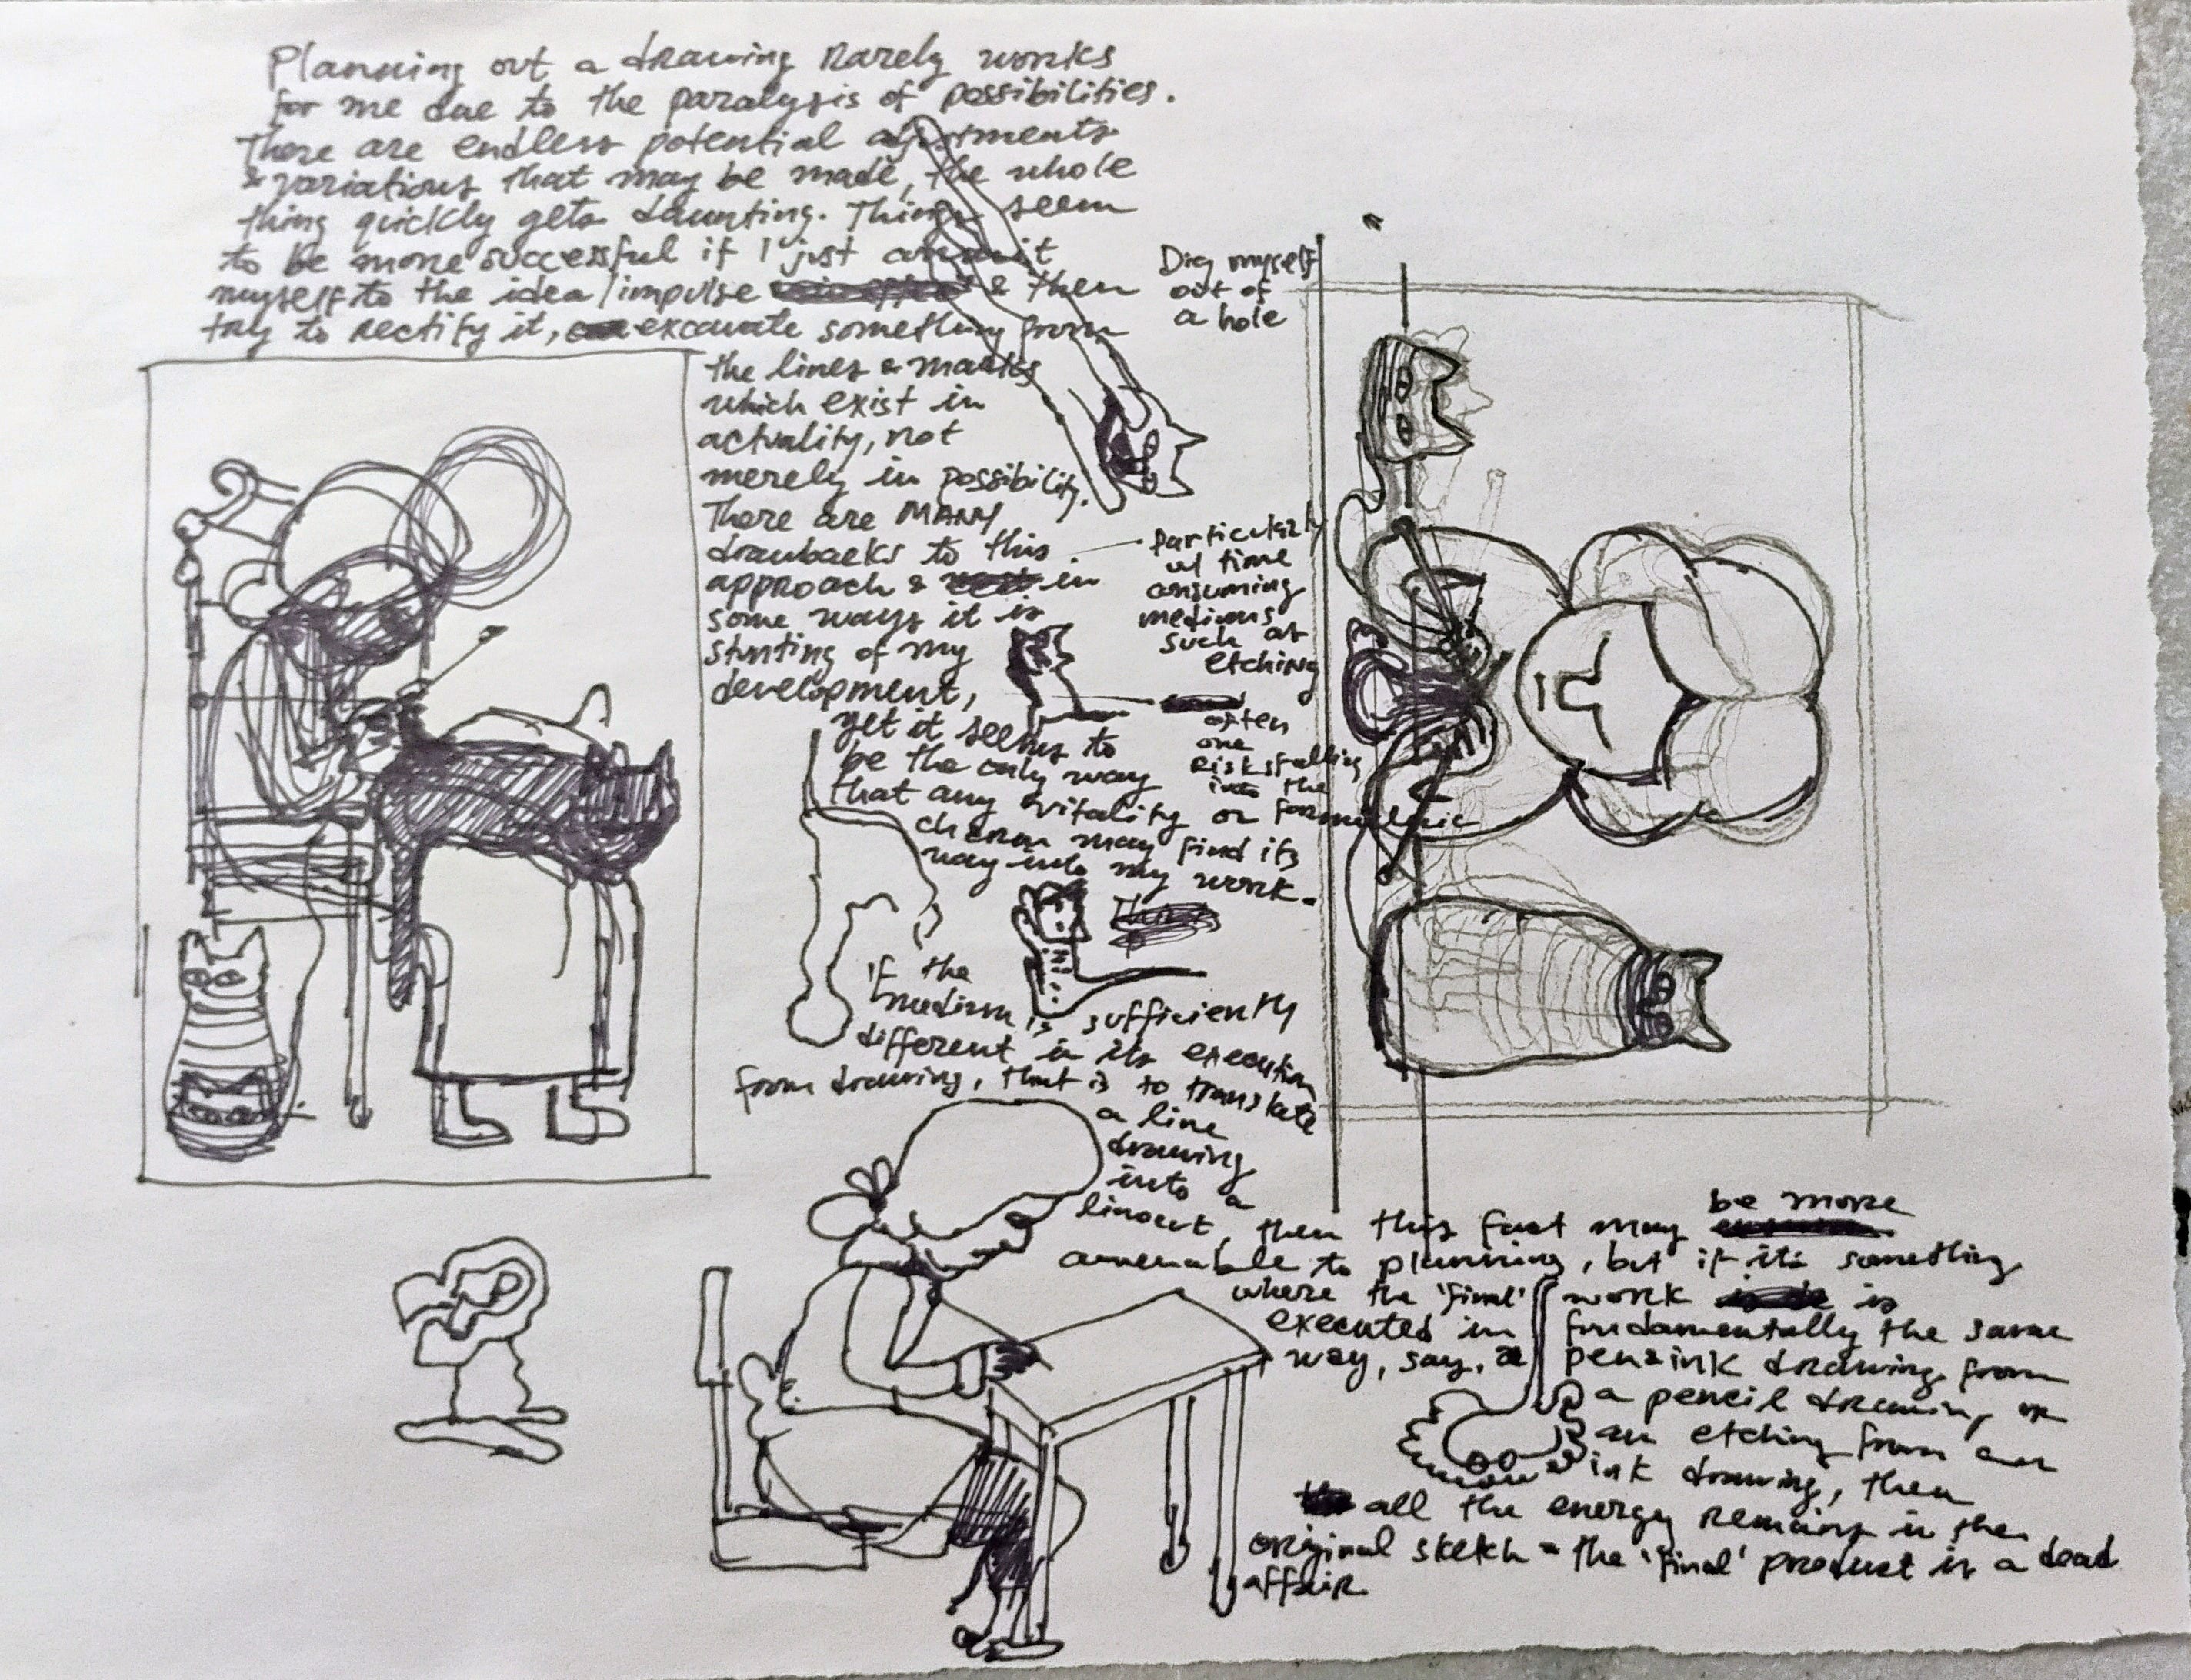 Planning out a drawing rarely works
for me due to the paralysis of possibilities.
There are endless potential
& variations that may be made, the whole
thing quickly gets daunting. Things seem
to be more successful if I just commit
myself to the idea/impulse & then
try to rectify it, excavate something from
the lines & marks
which exist in
actuality, not
merely in possibility.
There are MANY
drawbacks to this
approach & in
some ways it is
stunting of my
development,
yet it seems to
be the only way
that any vitality or
charm may find its
way into my work.
Dig myself
out of
a hole
particularly
w/ time
mediums
such as
etching
often
one
risks falling
into the
formulaic
if the
medium is sufficiently
different in its execution
from drawing, that is to translate
a line
drawing
into a
linocut, then this fact may be more
amenable to planning, but if it's something
where the 'final' work is
executed in fundamentally the same
way, say, a pen & ink drawing from
a pencil drawing or
an etching from an
ink drawing, then
all the energy remains in the
original sketch - the 'final' product is a dead
affair